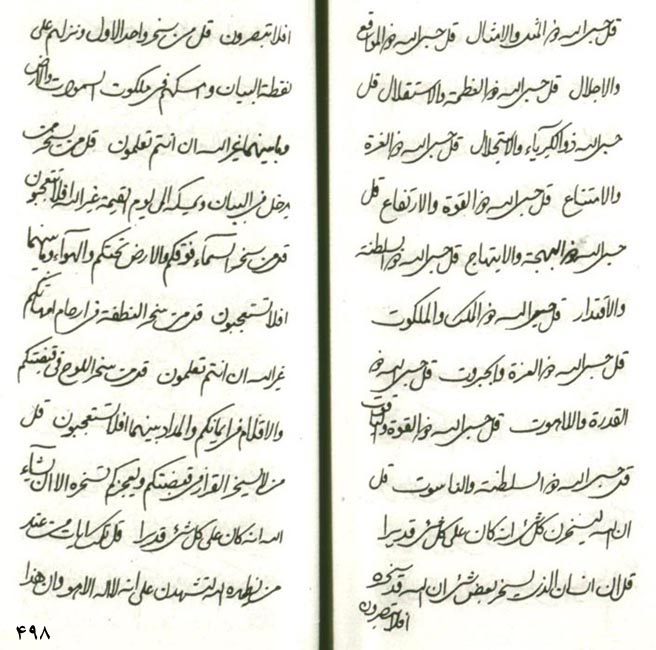 قل حسبی الله ذو المثل والامثال قل حسبی الله ذو المواقع
والاجلال قل حسبی الله ذو العظمة والاستقلال قل
حسبی الله ذو الکبریاء والاستجلال قل حسبی الله ذو العزة
والامتناع قل حسبی الله ذو القوة والارتفاع قل
حسبی الله ذو البهجة والابتهاج قل حسبی الله ذو السلطنة
والاقتدار قل حسبی الله ذو الملک والملکوت
قل حسبی الله ذو العزة والجبروت قل حسبی الله ذو
القدرة واللاهوت قل حسبی الله ذو القوة والیاقوت
قل حسبی الله ذو السلطنة والناسوت قل
ان الله لیسخرن کلشیء انه کان علی کل شیء قدیرا
قل ان انسان الذی یسخر بعض شیء ان الله قد سخره
افلا تبصرون
افلا تبصرون قل من سخر واحد الاول ونزلهم علی
نقطة البیان و امسکهم فی ملکوت السموات والارض
وما بینهما غیر الله ان انتم تعلمون قل من یسخر من
یدخل فی البیان و یمسکه الی یوم القیمة غیر الله افلا تتعجبون
قل من سخر السماء فوقکم والارض تحتکم والهواء وما بینهما
افلا تستعجبون قل من سخر النطفة فی ارحام امهاتکم
غیر الله ان انتم تعلمون قل من سخر اللوح فی قبضتکم
والاقلام فی ایمانکم والمداد بینهما افلا تستعجبون قل
من لا یسخر القرار فی قبضتکم ویعجزکم لتسخره الا ان یشاء
الله انه کان علی کل شیء قدیرا قل تلک آیات من عند
من یظهره الله لتشهدن علی انه لا اله الا هو وان هذا
۴۹۸